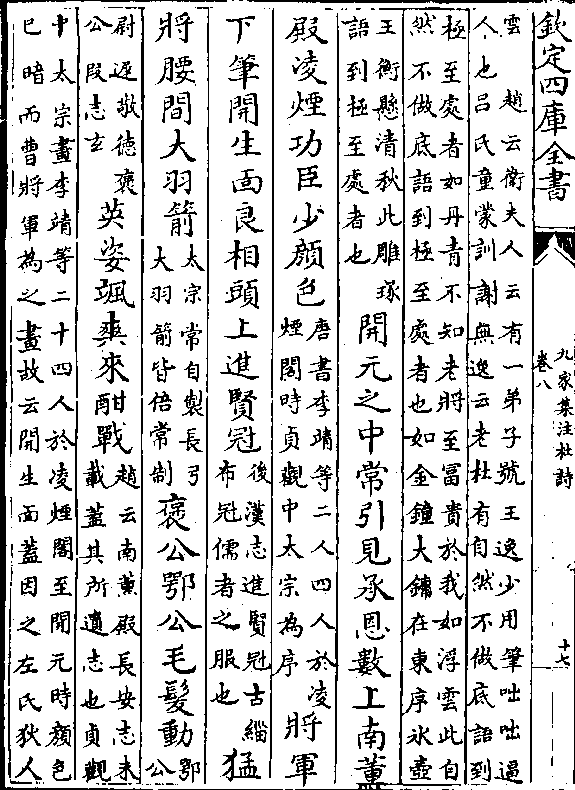 欽定四庫全書
九家集注杜詩
卷八
十七
雲　趙云衛夫人云有一弟子號王逸少用筆咄咄逼
人也吕氏童蒙訓謝無逸云老杜有自然不做底語到
極至處者如丹青不知老將至富貴於我如浮雲此自
然不做底語到極至處者也如金鐘大鏞在東序氷壺
玉衡懸清秋此雕琢
語到極至處者也
開元之中常引見承恩數上南薰
殿凌煙功臣少顏色
唐書李靖等二人四人於凌
煙閣時貞觀中太宗為序
將軍
下筆開生面良相頭上進賢冠
後漢志進賢冠古緇
布冠儒者之服也
猛
將腰間大羽箭
太宗常自製長弓
大羽箭皆倍常制
褒公鄂公毛髮動
鄂
公
尉遲敬德褒
公段志玄
英姿颯爽來酣戰
趙云南薰殿長安志未
載蓋其所遺志也貞觀
中太宗畫李靖等二十四人於凌煙閣至開元時顏色
已暗而曹將軍為之畫故云開生面蓋因之左氏狄人